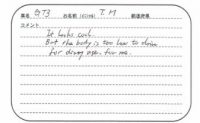 題名 GT3 お名前(イニシャル) T.M 都道府県
コメント
It looks cool.
But the body is too low to drive
for diving age. for me.